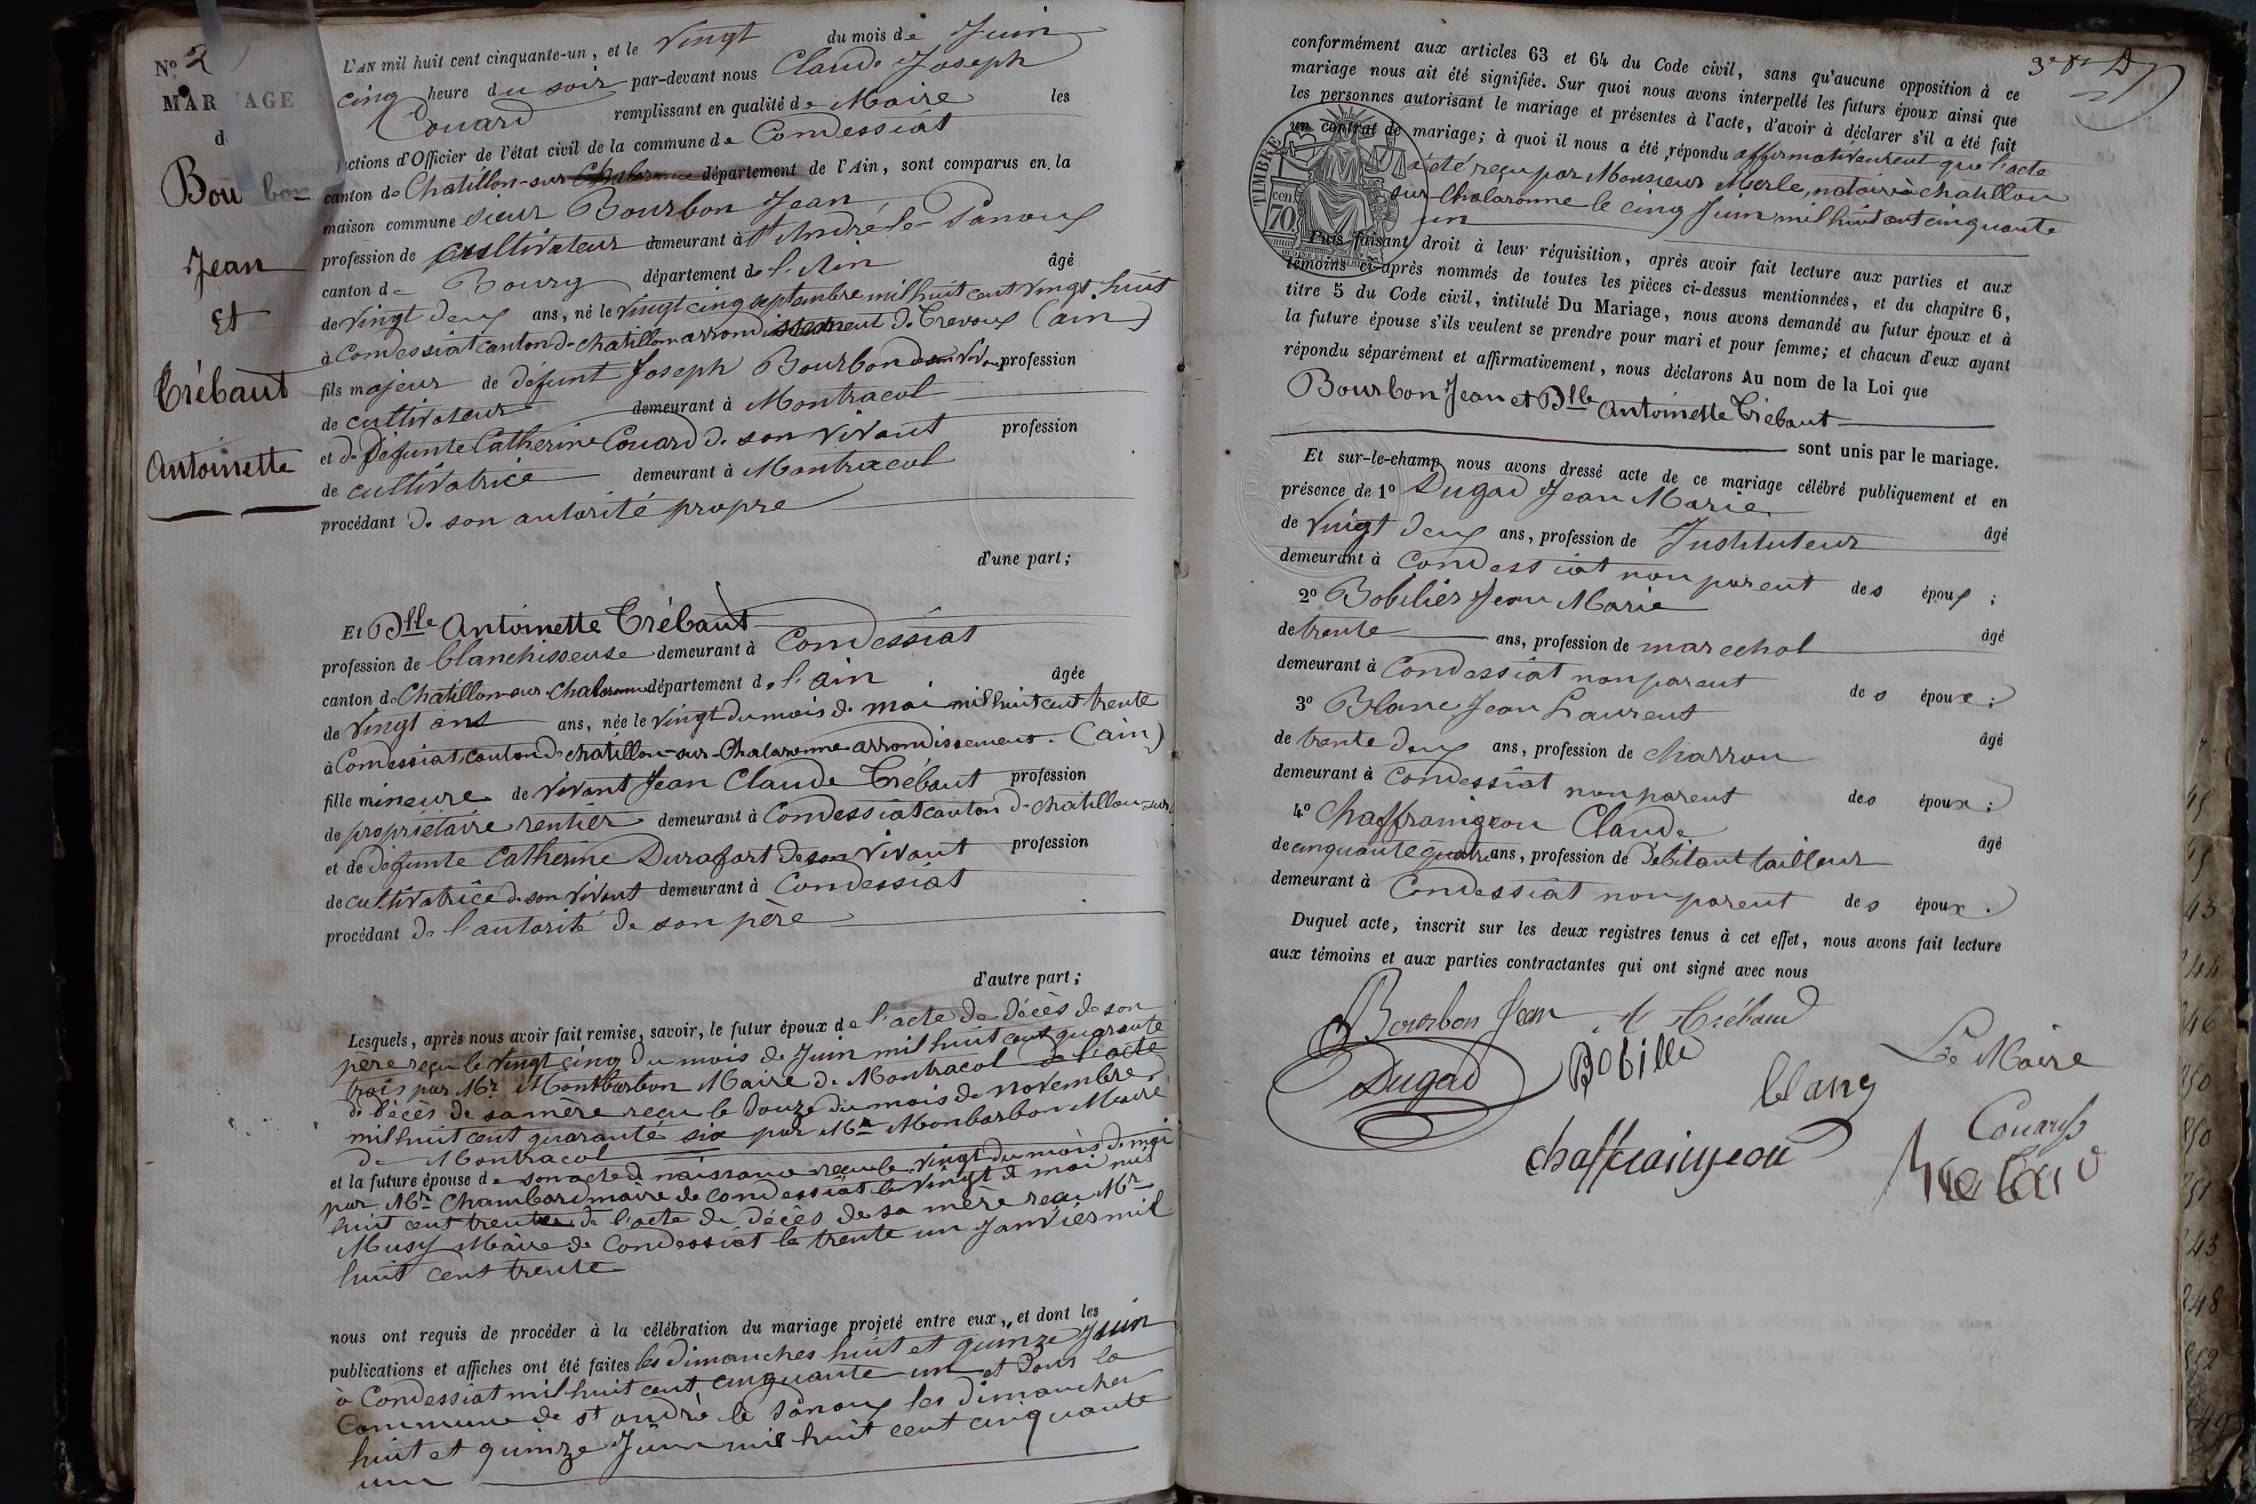 No 2
MARIAGE
d
Bourbon
Jean
Et
Trébaut
Antoinette
L'AN mil huit cent cinquante-un, et le vingt du mois de Juin
cinq heure du soir par-devant nous Claude Joseph
Couard remplissant en qualité de Maire les
fonctions d'Officier de l'état civil de la commune de Condessiat
canton de Chatillon-sur Chalaronne département de l'Ain, sont comparus en la
maison commune sieur Bourbon Jean
profession de cultivateur demeurant à St André le Panoux
canton de Bourg département de l'Ain âgé
de vingt deux ans, né le vingt cinq septembre mil huit cent vingt huit
à Condessiat canton de chatillon arrondissement de Trevoux (ain)
fils majeur de défunt Joseph Bourbon de son vivant profession
de cultivateur demeurant à Montracol
et de défunte Catherine Couard de son vivant profession
de cultivatrice demeurant à Montracol
procédant de son autorité propre
d'une part;
Et Dlle Antoinette Trébaut
profession de blanchisseuse demeurant à Condessiat
canton de Chatillon-sur-Chalaronne département de l'ain âgée
de vingt ans ans, née le vingt du mois de mai mil huit cent trente
à Condessiat canton de chatillon-sur-Chalaronne arrondissement (ain)
fille mineure de vivant Jean Claude Trébaut profession
de propriétaire rentier demeurant à Condessiat canton de chatillon-sur
et de défunte Catherine Durafort de son vivant profession
de cultivatrice de son vivant demeurant à Condessiat
procédant de l'autorité de son père
d'autre part;
Lesquels, après nous avoir fait remise, savoir, le futur époux de l'acte de décès de son
père reçu le vingt cinq du mois de Juin mil huit cent quarante
trois par Mr Montbarbon Maire de Montracol de l'acte
de décès de sa mère reçu le douze du mois de novembre
mil huit cent quarante six par Mr Monbarbon Maire
de Montracol
et la future épouse de son acte de naissance reçu le vingt du mois de mai
par Mr Chambard maire de condessiat le vingt de mai mil
huit cent trente de l'acte de décès de sa mère reçu Mr
Musy Maire de Condessiat le trente un Janvier mil
huit cent trente
nous ont requis de procéder à la célébration du mariage projeté entre eux, et dont les
publications et affiches ont été faites les dimanches huit et quinze Juin
à Condessiat mil huit cent cinquante un et dans la
Commune de st andré le Panoux les dimanches
huit et quinze Juin mil huit cent cinquante
un
conformément aux articles 63 et 64 du Code civil, sans qu'aucune opposition à ce
mariage nous ait été signifiée. Sur quoi nous avons interpellé les futurs époux ainsi que
les personnes autorisant le mariage et présentes à l'acte, d'avoir à déclarer s'il a été fait
un contrat de mariage; à quoi il nous a été répondu affirmativement que l'acte
a été reçu par Monsieur Merle, notaire à chatillon
sur Chalaronne le cinq Juin mil huit cent cinquante
un
TIMBRE
70
Puis faisant droit à leur réquisition, après avoir fait lecture aux parties et aux
témoins ci-après nommés de toutes les pièces ci-dessus mentionnées, et du chapitre 6,
titre 5 du Code civil, intitulé Du Mariage, nous avons demandé au futur époux et à
la future épouse s'ils veulent se prendre pour mari et pour femme; et chacun d'eux ayant
répondu séparément et affirmativement, nous déclarons Au nom de la Loi que
Bourbon Jean et Dlle Antoinette Trébaut
sont unis par le mariage.
Et sur-le-champ nous avons dressé acte de ce mariage célébré publiquement et en
présence de 1º Dugad Jean Marie
de vingt deux ans, profession de Instituteur âgé
demeurant à Condessiat non parent des époux;
2º Bobilier Jean Marie
de trente ans, profession de marechal âgé
demeurant à Condessiat non parent des époux;
3º Blanc Jean Laurent
de trente deux ans, profession de charron âgé
demeurant à Condessiat non parent des époux;
4º Chaffraingeon Claude
de cinquante quatre ans, profession de débitant tailleur âgé
demeurant à Condessiat non parent des époux.
Duquel acte, inscrit sur les deux registres tenus à cet effet, nous avons fait lecture
aux témoins et aux parties contractantes qui ont signé avec nous
Bourbon Jean A Trébaud
Dugad Bobillé Blanc Le Maire
Couard
Chaffraingeon